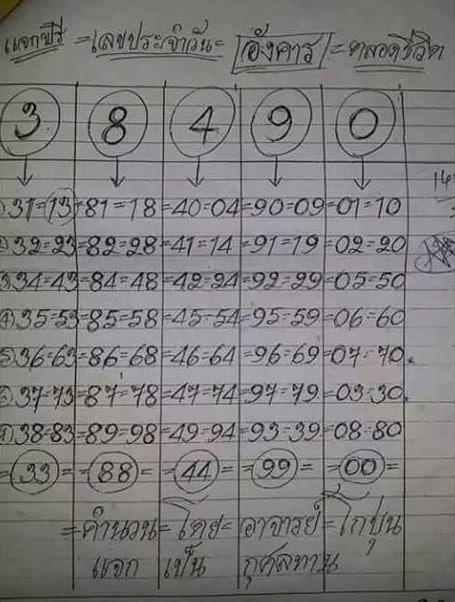 แจกฟรี =เลขประจำวัน= อังคาร =ตลอดชีวิต
3 8 4 9 0
1) 31=13=81=18=40=04=90=09=01=10
2) 32=23=82=28=41=14=91=19=02=20
3) 34=43=84=48=42=24=92=29=05=50
4) 35=53=85=58=45=54=95=59=06=60
5) 36=63=86=68=46=64=96=69=07=70
6) 37=73=87=78=47=74=97=79=03=30
7) 38=83=89=98=49=94=93=39=08=80
=33= =88= =44= =99= =00=
=คำนวน=โดย=อาจารย์=โกปุน
แจก เป็น กุศลทาน